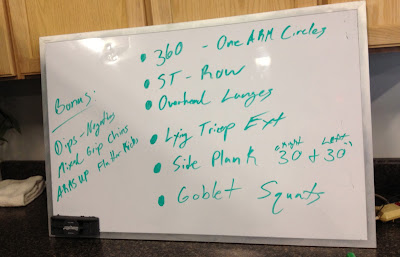 Bonus.
Dips - Negatives
Mixed Grip Chins
ARMS UP Flutter Kicks
• 360 - One ARM Circles
• ST - Row
• Overhead Lunges
• Lying Tricep Ext
• Side Plank Right 30 + Left 30
• Goblet Squats